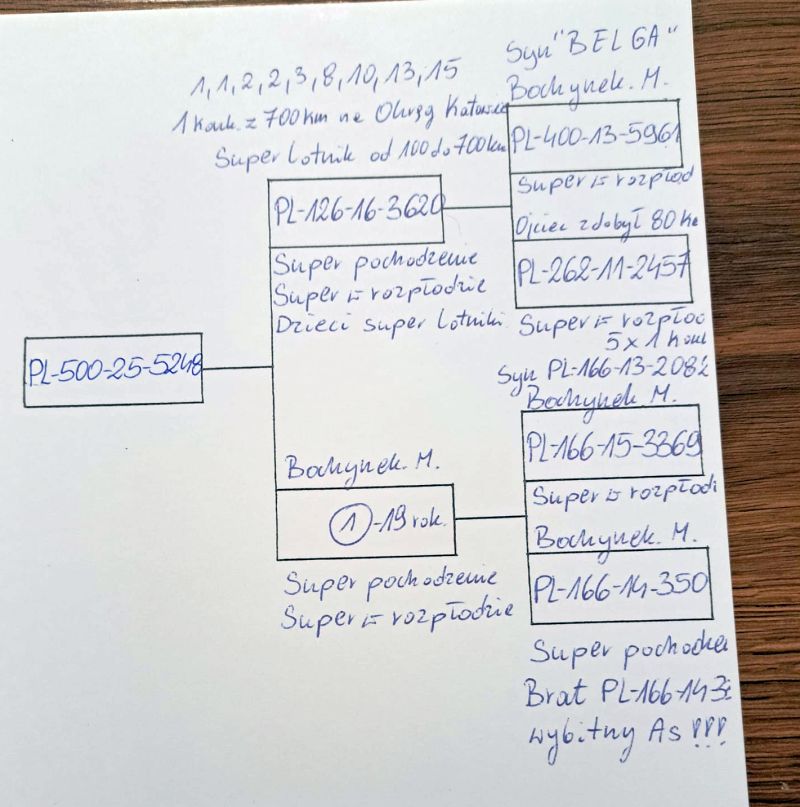 1, 1, 2, 2, 3, 8, 10, 13, 15
1 Konk. z 700 km na Okręg
Super Lotnik od 100 do 700km
PL-126-16-3620
Super pochodzenie
Super w rozpłodzie
Dzieci super lotniki
Syn "BELGA"
Bochynek. M.
PL-400-13-5961
Super w rozpłod
Ojciec zdobył 80
PL-262-11-2457
Super w rozpło
5 x 1
PL-500-25-5248
Bochynek. M.
1 -19 rok.
Super pochodzenie
Super w rozpłodzie
Syn PL-166-13-2082
Bochynek. M.
PL-166-15-3369
Super w rozpłodzi
Bochynek. M.
PL-166-14-350
Super
Brat PL-166-14-
wybitny As !!!